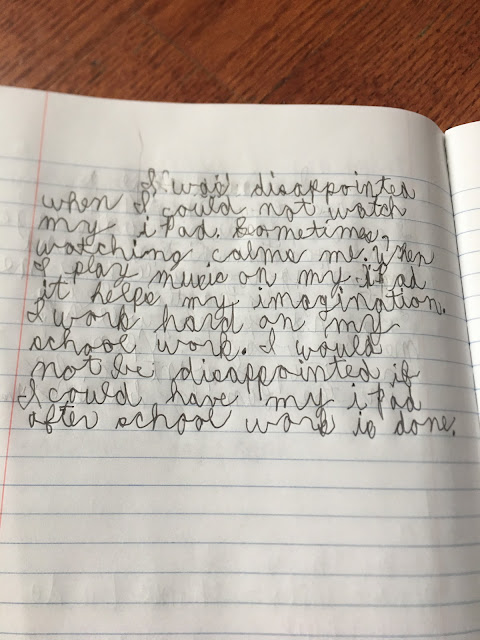 I was disappointed
when I could not watch
my iPad. Sometimes,
watching calms me. When
I play music on my iPad
it helps my imagination.
I work hard on my
school work. I would
not be disappointed if
I could have my iPad
after school work is done.